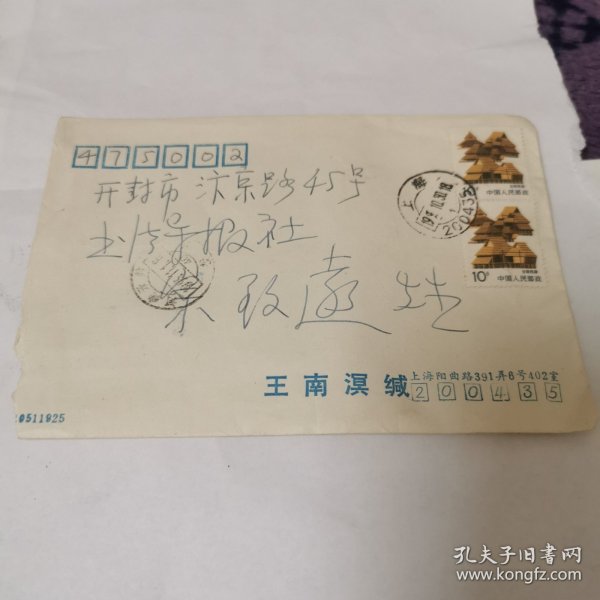 475002
开封市汴京路45号
书法导报社
上海
200435
中国人民邮政
10分
中国人民邮政
王南溟缄
上海阳曲路391弄6号402室
200435
0511925
孔夫子旧书网
www.kongfz.com